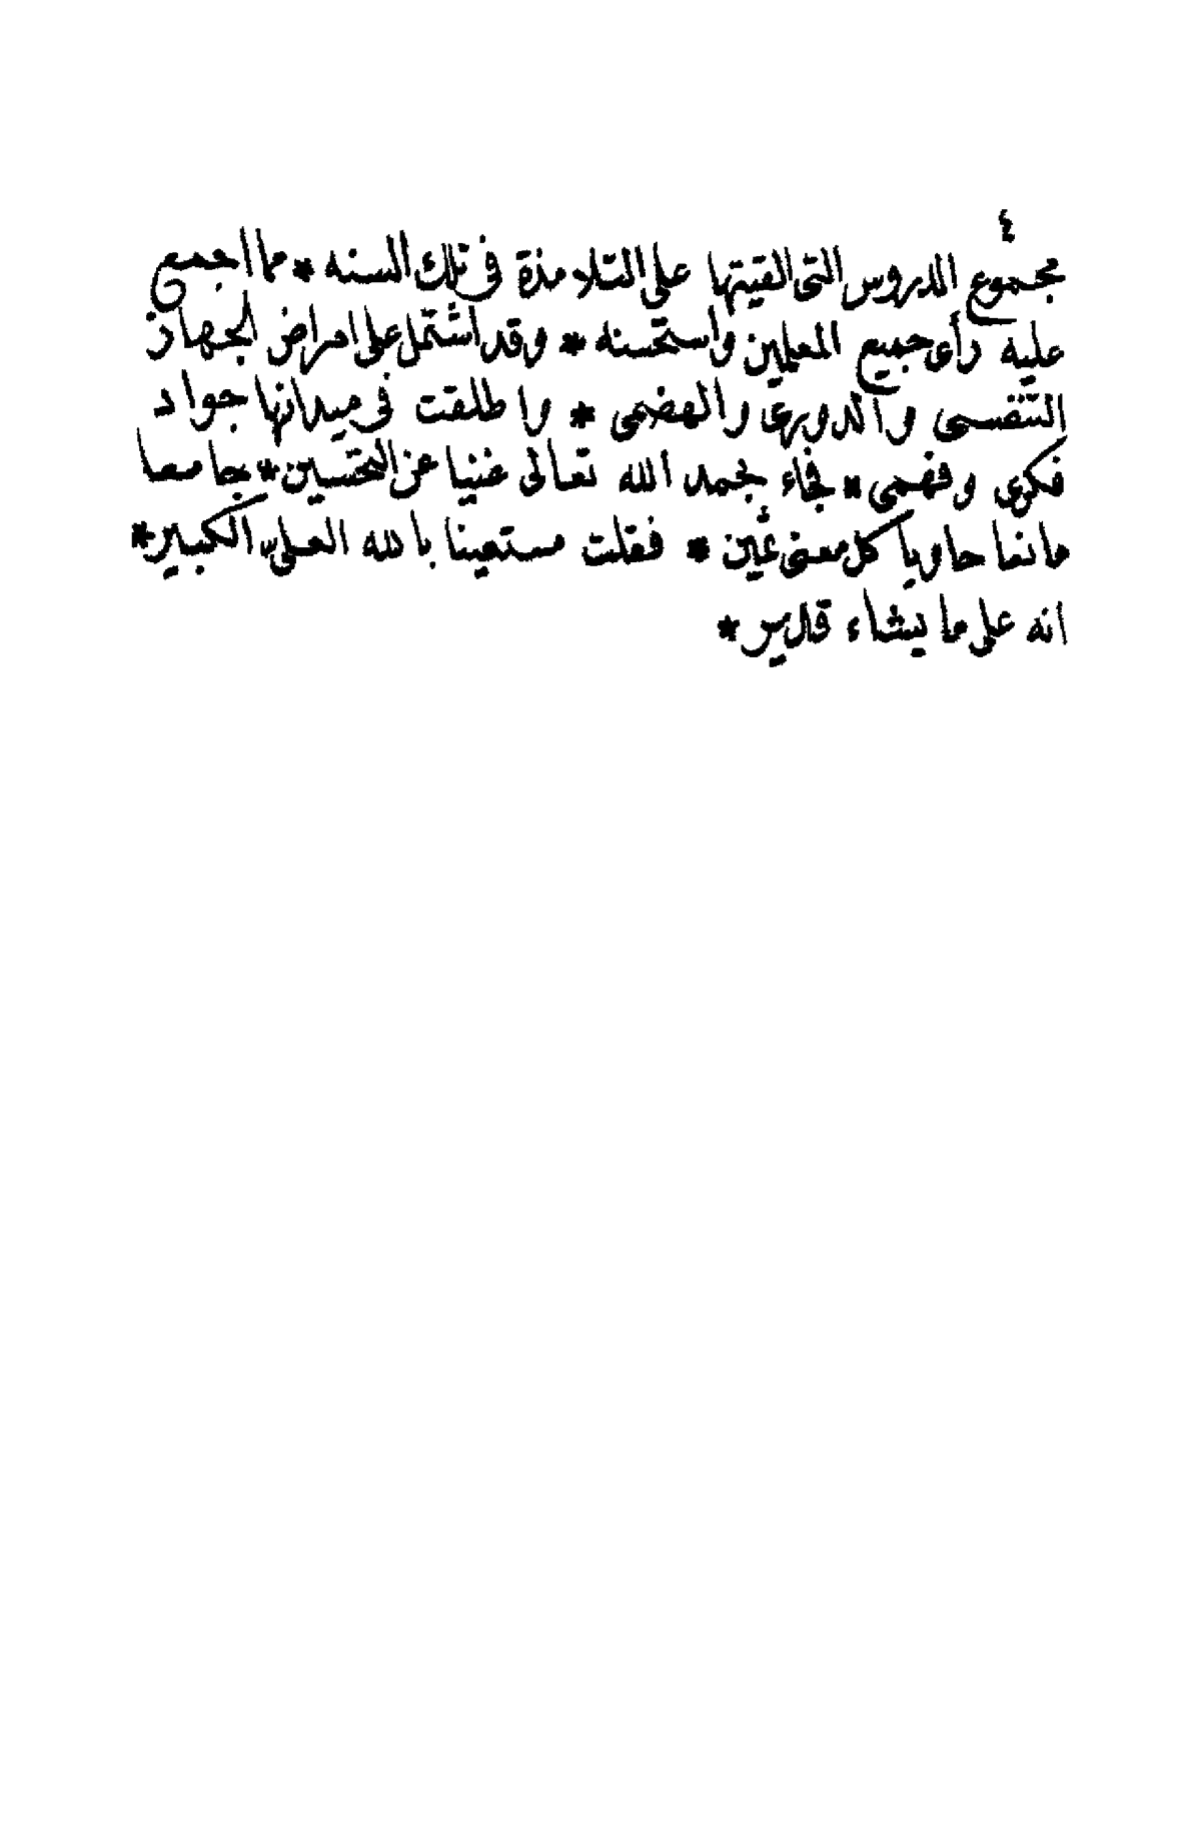 ٤
مجموع الدروس التى القيتها على التلامذة فى تلك السنه * مما اجمع
عليه رأى جميع المعلمين واستحسنه * وقد اشتمل على امراض الجهاز
التنفسى والدورى والهضمى * واطلقت فى ميدانها جواد
فكرى وفهمى * فجاء بحمد الله تعالى غنيا عن التحسين * جامعا
مانعا حاويا كل معنى ثمين * فقلت مستعينا بالله العلى الكبير *
انه على ما يشاء قدير *